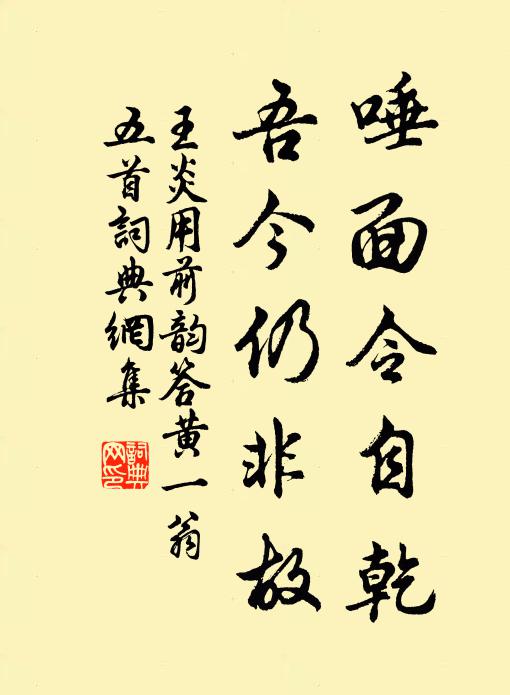 唾面令自乾
吾今仍非故
王炎用前韵答黄一翁
五首詞典網集
詞典网印